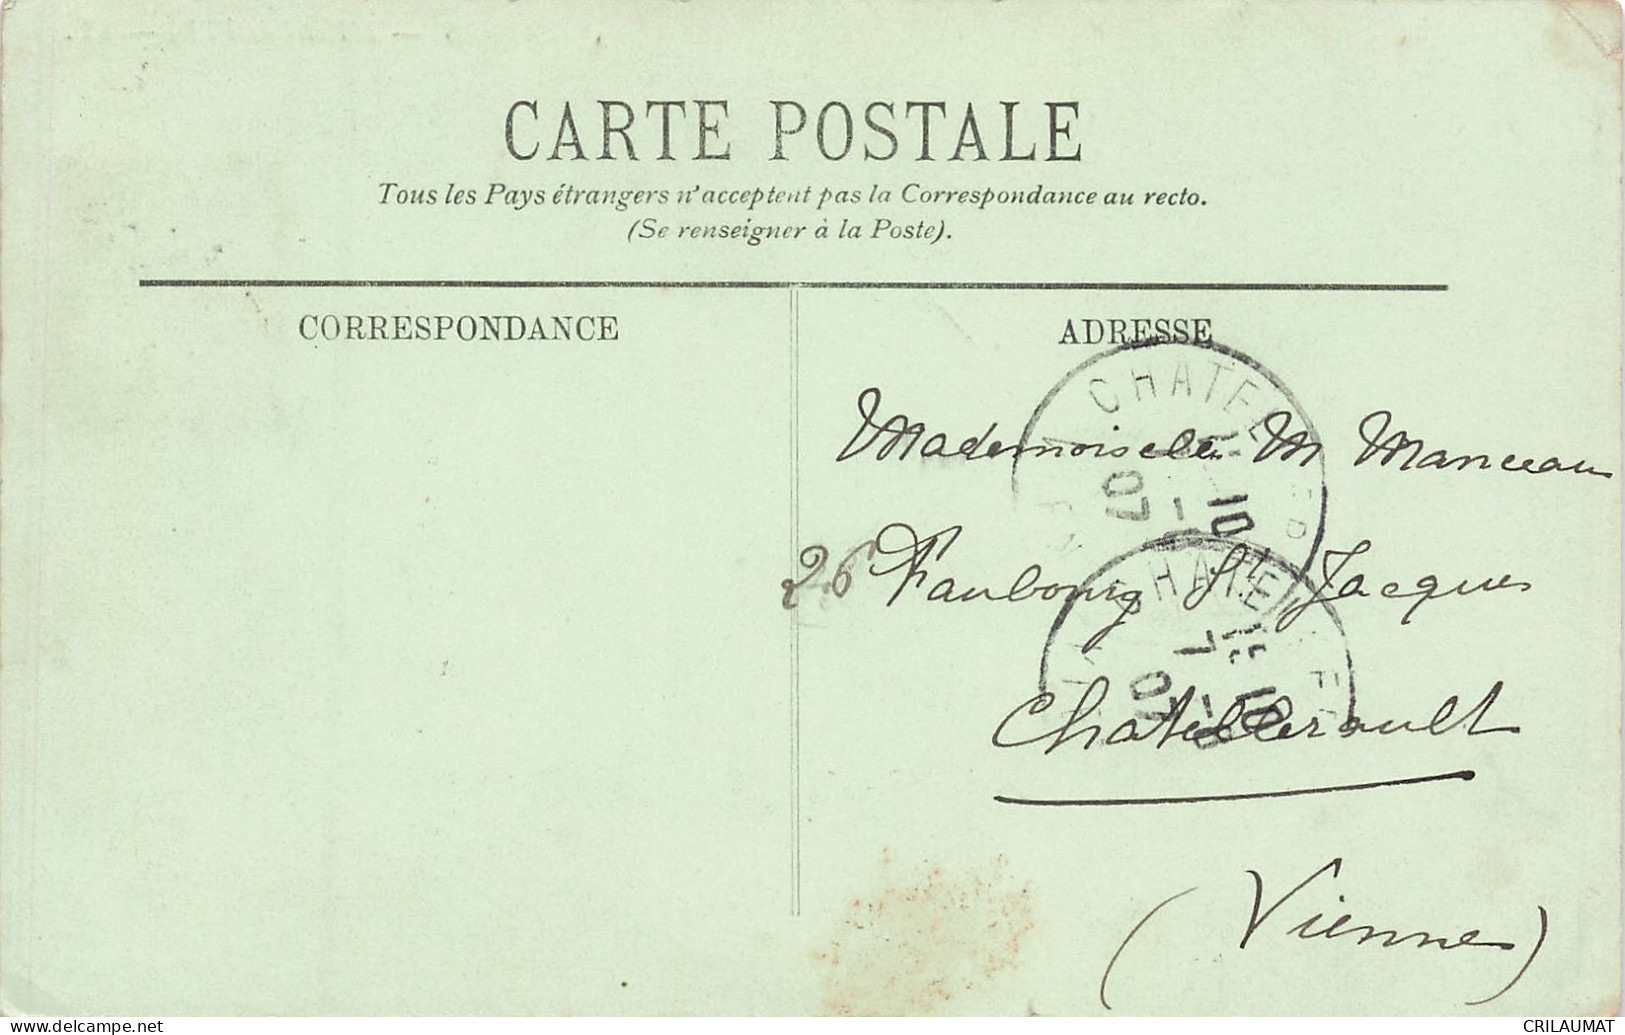 CARTE POSTALE
Tous les Pays étrangers n'acceptent pas la Correspondance au recto.
(Se renseigner à la Poste).
CORRESPONDANCE
ADRESSE
Mademoiselle M Manceau
26 Faubourg St Jacques
Chatellerault
(Vienne)
CHATEL
10
07
CHATE
7
10
07
www.delcampe.net
CRILAUMAT